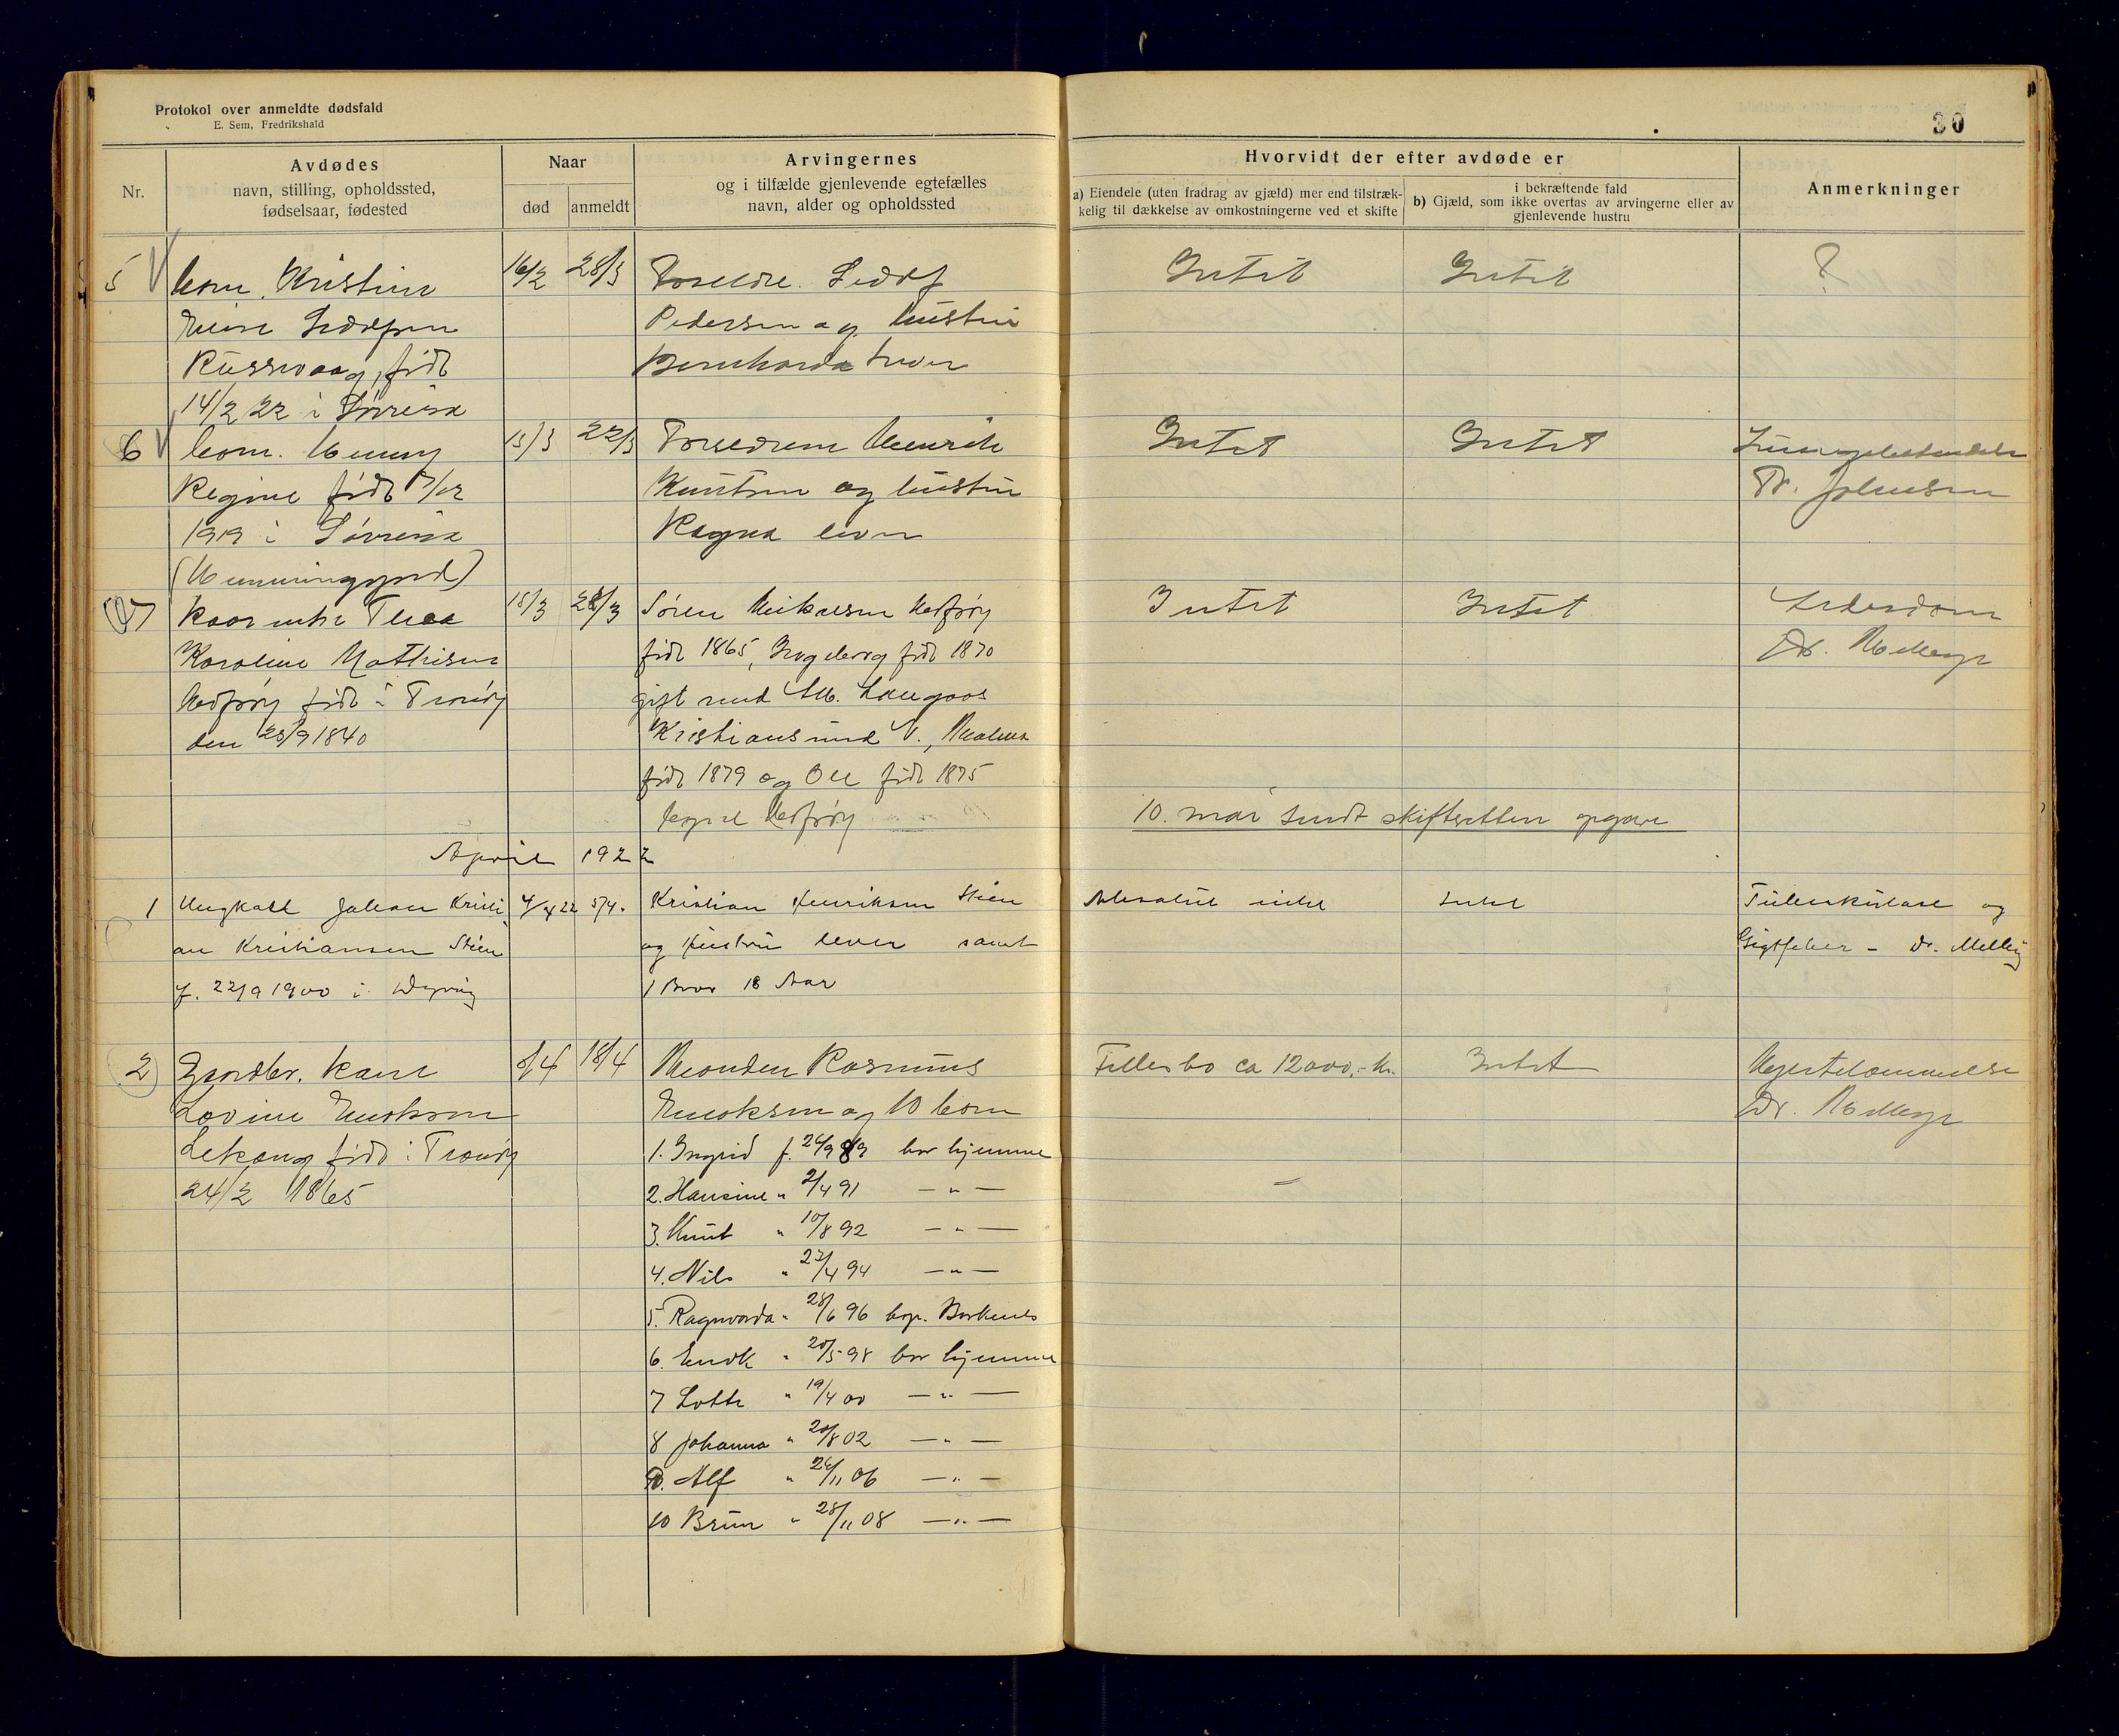 Protokol over anmeldte dødsfald
E. Sem, Fredrikshald
30
Nr.
Avdødes
navn, stilling, opholdssted,
fødselsaar, fødested
Naar
død
anmeldt
Arvingernes
og i tilfælde gjenlevende egtefælles
navn, alder og opholdssted
Hvorvidt der efter avdøde er
a) Eiendele (uten fradrag av gjæld) mer end tilstræk-
kelig til dækkelse av omkostningerne ved et skifte
i bekræftende fald
b) Gjæld, som ikke overtas av arvingerne eller av
gjenlevende hustru
Anmerkninger
5 barn. Kristine 16/2 28/3 Foreldre. Intet Intet ?
Pedersen og hustru
født Bernharda lever
14/2 22 i Sørreisa
6 barn. Henny 13/3 22/3 Foreldrene Henrik Intet Intet
Regine født 17/12 Knutsen og hustru Dr. Johnsen
1919 i Sørreisa Ragna lever
(Hemmingsjord)
7 Thea 15/3 28/3 Søren Mikalsen Intet Intet Alderdom
Karoline Mathisen født 1865, Ingeborg født 1870 Dr.
født i Tranøy gift med
den 25/9 1840 Kristiansund N.,
født 1879 og Ole født 1875
10. mai sendt skifteretten opgave
April 1922
1 Ungkall Johan Kristi- 4/4 22 5/4. Kristian Henriksen Stien Absolut intet Intet Tuberkulose og
an Kristiansen Stien og Hustru lever samt Gigtfeber - Dr.
f. 22/9 1900 i Dyrøy 1 Bror 18 Aar
2) Gaardbr. kone 8/4 18/4 Manden Rasmus Fellesbo ca 12000,- kr. Intet Hjertelammelse
Lovine Enoksen Enoksen og 10 barn Dr.
Lekang født i Tranøy 1. Ingrid f. 26/9 89 bor hjemme
24/2 1865 2. Hansine " 2/4 91 — " —
3. Knut " 10/8 92 — " —
4. Nils " 27/4 94 — " —
5. Ragnvarda " 28/6 96 bop. Borkenes
6. Enok " 20/5 98 bor hjemme
7 Lotte " 19/4 00 — " —
8 Johanna " 20/8 02 — " —
9. Alf " 26/11 06 — " —
10 Brun " 28/11 08 — " —